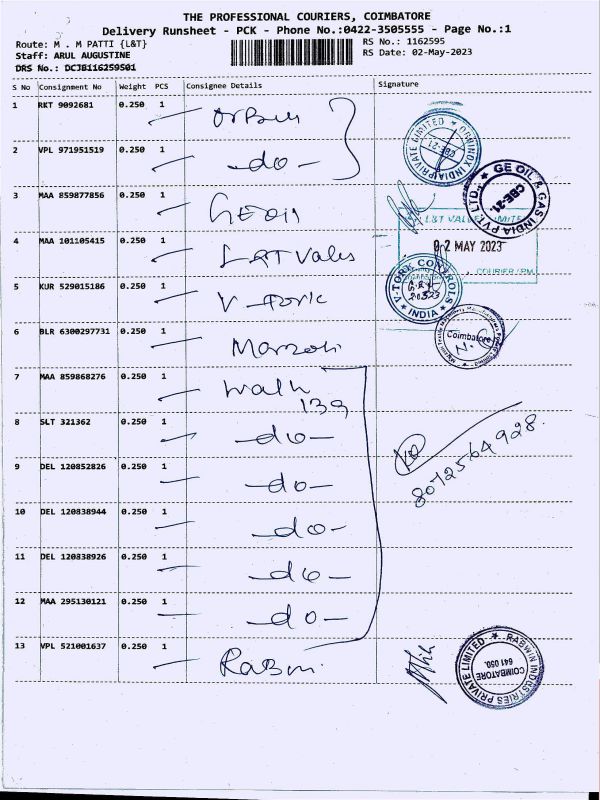 THE PROFESSIONAL COURIERS, COIMBATORE
Delivery Runsheet - PCK - Phone No.:0422-3505555 - Page No.:1
Route: M . M PATTI {L&T}
RS No.: 1162595
Staff: ARUL AUGUSTINE
RS Date: 02-May-2023
DRS No.: DCJB116259501
S No Consignment No Weight PCS Consignee Details Signature
1 RKT 9092681 0.250 1
2 VPL 971951519 0.250 1 -do-
3 MAA 859877856 0.250 1 GEOil
4 MAA 101105415 0.250 1 L&T Valves
5 KUR 529015186 0.250 1 V-Tork
6 BLR 6300297731 0.250 1
7 MAA 859868276 0.250 1 Walk
139
8 SLT 321362 0.250 1 -do-
9 DEL 120852826 0.250 1 -do-
10 DEL 120838944 0.250 1 -do-
11 DEL 120838926 0.250 1 -do-
12 MAA 295130121 0.250 1 -do-
13 VPL 521001637 0.250 1
ORMINOX INDIA PRIVATE LIMITED
CBE-21
GE OIL & GAS INDIA PVT LTD.,
CBE-21
L&T VALVES LIMITED
02 MAY 2023
COURIER
V-TORK CONTROLS
INDIA
Coimbatore
8072564928
RABWIN INDUSTRIES PRIVATE LIMITED
COIMBATORE
641 050.